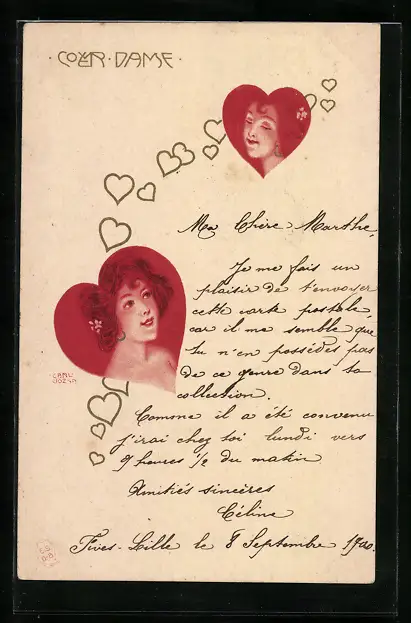 · COEUR · DAME ·
Ma Chère Marthe,
Je me fais un
plaisir de t'envoyer
cette carte postale
car il me semble que
tu n'en possèdes pas
de ce genre dans ta
collection.
CARL
JOZSA
Comme il a été convenu
j'irai chez toi lundi vers
9 heures 1/2 du matin
Amitiés sincères
Céline
Fives-Lille le 8 Septembre 1900.